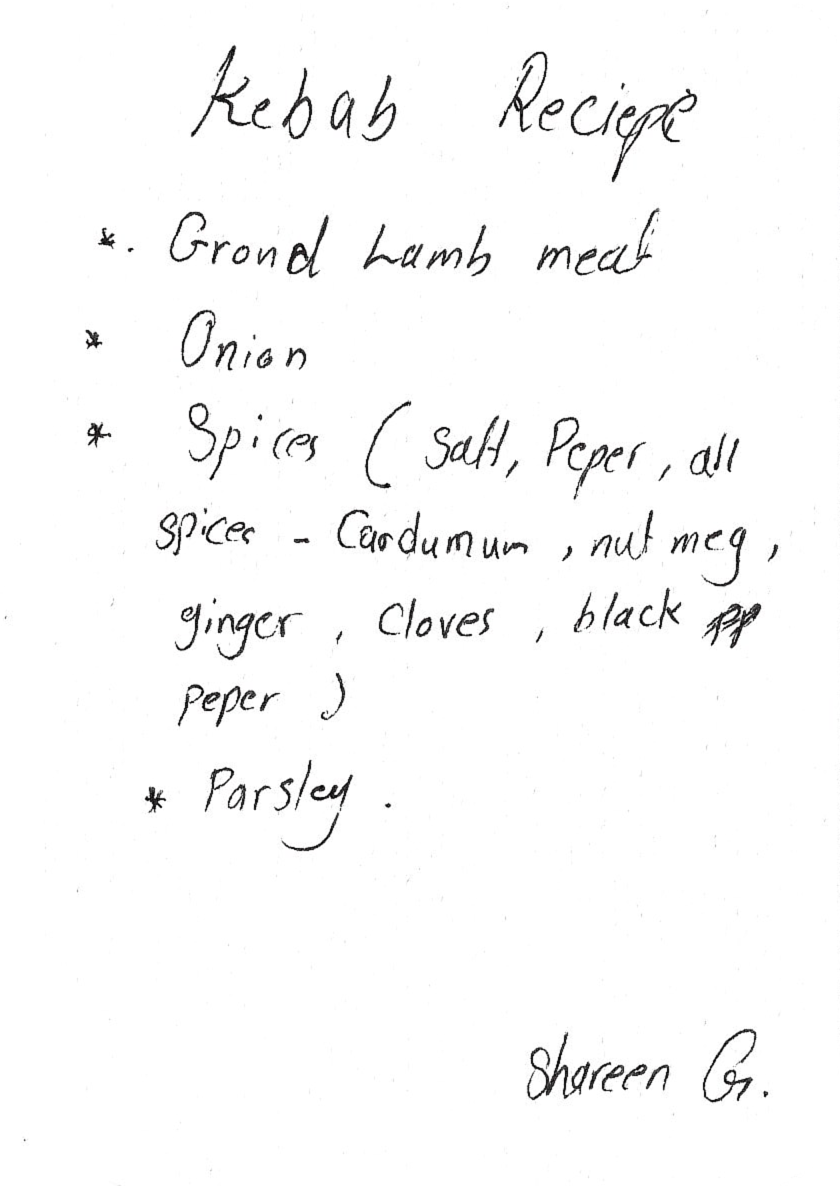 Kebab Reciepe
*. Grond Lamb meat
* Onion
* Spices ( Salt, Peper, all
spices - Cardumum, nut meg,
ginger, Cloves, black
peper )
* Parsley.
Shareen G.